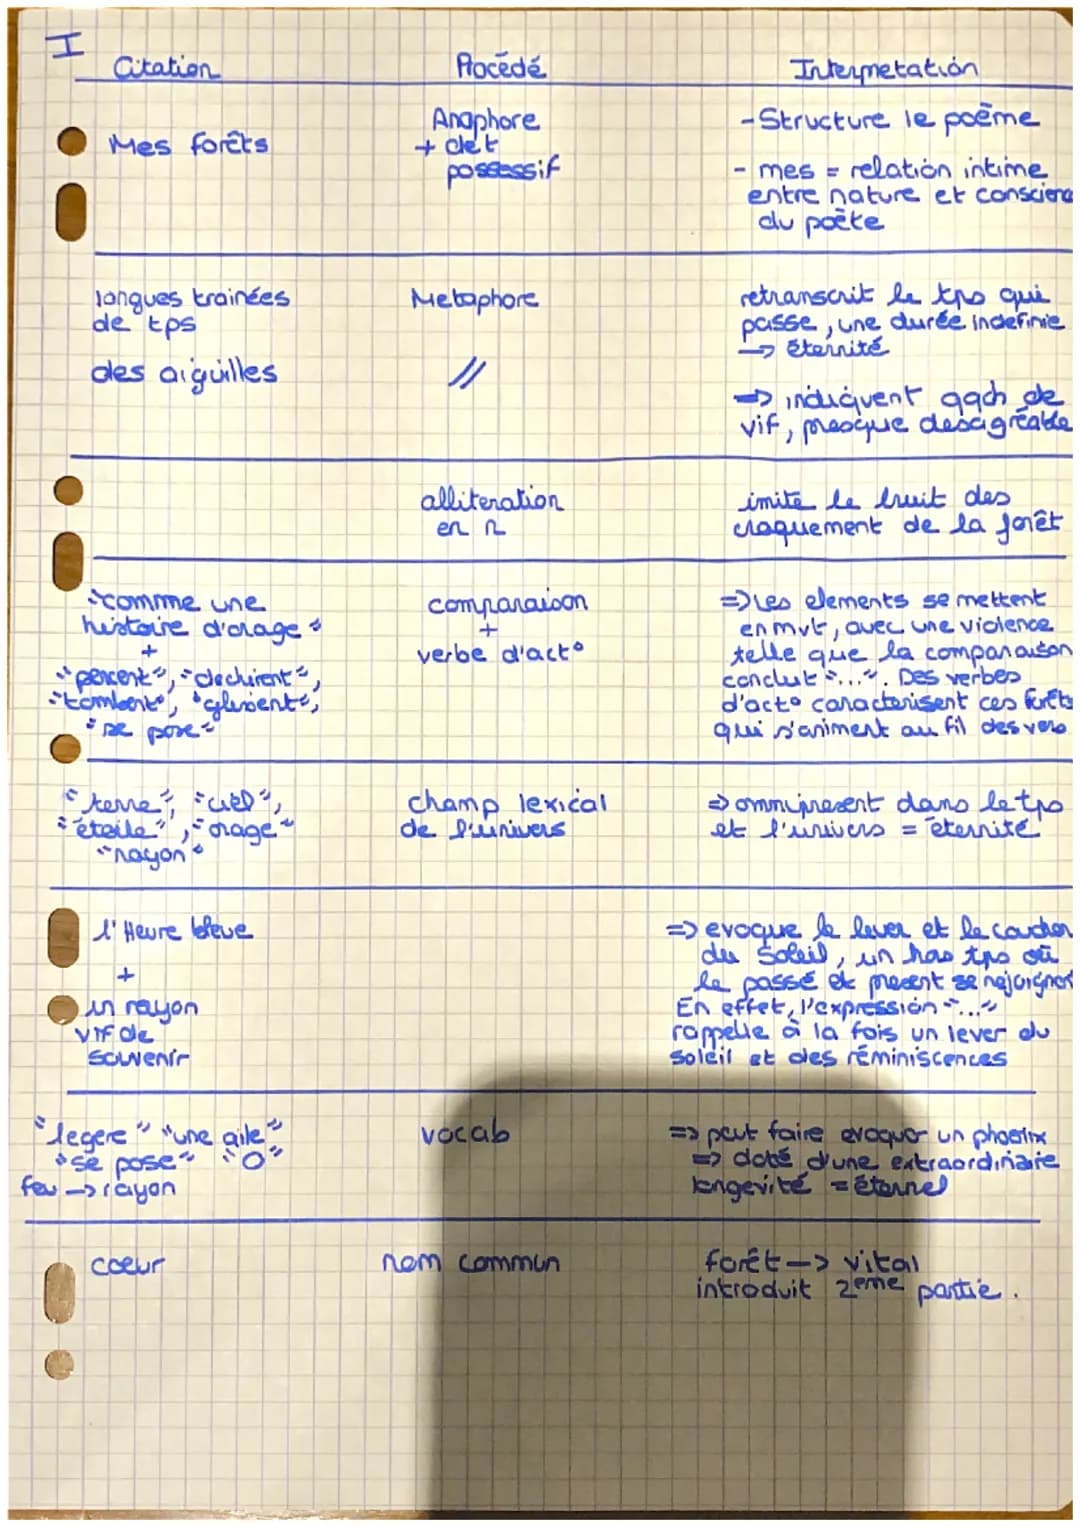 I
Citation Procédé Interpretation
Mes forêts
Anaphore
+ det
possessif
- Structure le poème
- mes = relation intime
entre nature et conscience
du poète
longues trainées
de tps
Metaphore
retranscrit le tps qui
passe, une durée indefinie
→ éternité
des aiguilles
//
=> indiquent qqch de
vif, presque desagréable
alliteration
en r
imite le bruit des
craquement de la forêt
"comme une
histoire d'orage"
+
"percent", "dechirent",
"tombent", "glissent",
"se pose"
comparaison
+
verbe d'act°
=> Les elements se mettent
en mvt, avec une violence
telle que la comparaison
conclut "...". Des verbes
d'act° caracterisent ces forêts
qui s'animent au fil des vers
"terre", "ciel",
"étoile", "orage"
"rayon"
champ lexical
de l'univers
=> omnipresent dans le tps
et l'univers = éternité
l'Heure bleue
+
un rayon
vif de
souvenir
=> evoque le lever et le coucher
du Soleil, un hors tps où
le passé et present se rejoignent
En effet, l'expression "..."
rappelle à la fois un lever du
soleil et des réminiscences
"legere" "une aile"
"se pose" "O"
feu → rayon
vocab
=> peut faire evoquer un phoenix
=> doté d'une extraordinaire
longevité = éternel
coeur
nom commun
forêt → vital
introduit 2eme partie.